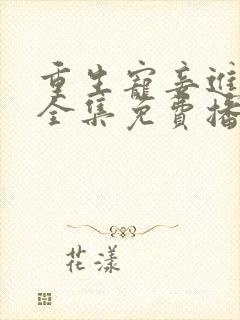 重生寵妾進
全集免費播
花漾